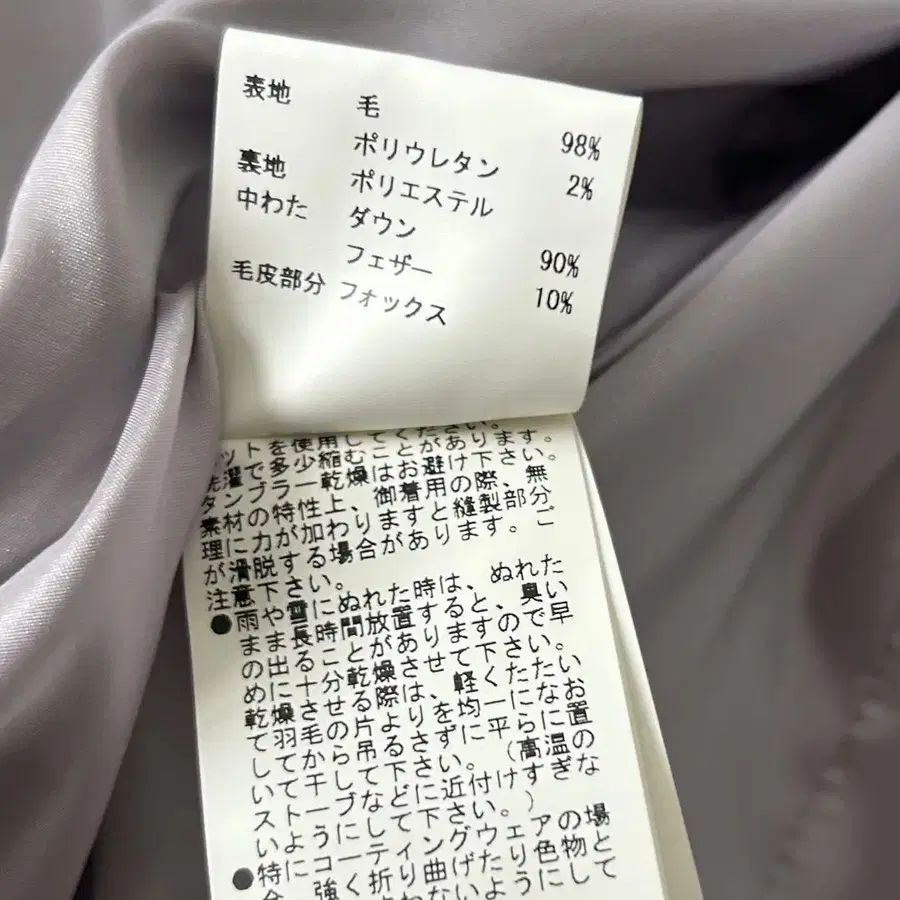 表地 毛 98%
ポリウレタン 2%
裏地 ポリエステル
中わた ダウン 90%
フェザー 10%
毛皮部分 フォックス
ットを使用してください。
洗濯で多少縮むことがあります。
タンブラー乾燥はお避け下さい。
素材の特性上、御着用の際、無
理に力が加わりますと縫製部分
が滑脱する場合があります。ご
注意下さい。
●雨や雪にぬれた時は、ぬれた
まま長時間放置すると、臭い
の出ることがありますので早
めに十分乾燥させて下さい。
乾燥させる際は、軽くたたい
て羽毛の片よりを均一になお
してから吊るさずに平らに置
いて干して下さい。(高温の
ストーブなどに近付けすぎな
いようにして下さい。)
●特にコーティングウェアの場
合、強く折り曲げたり色物と